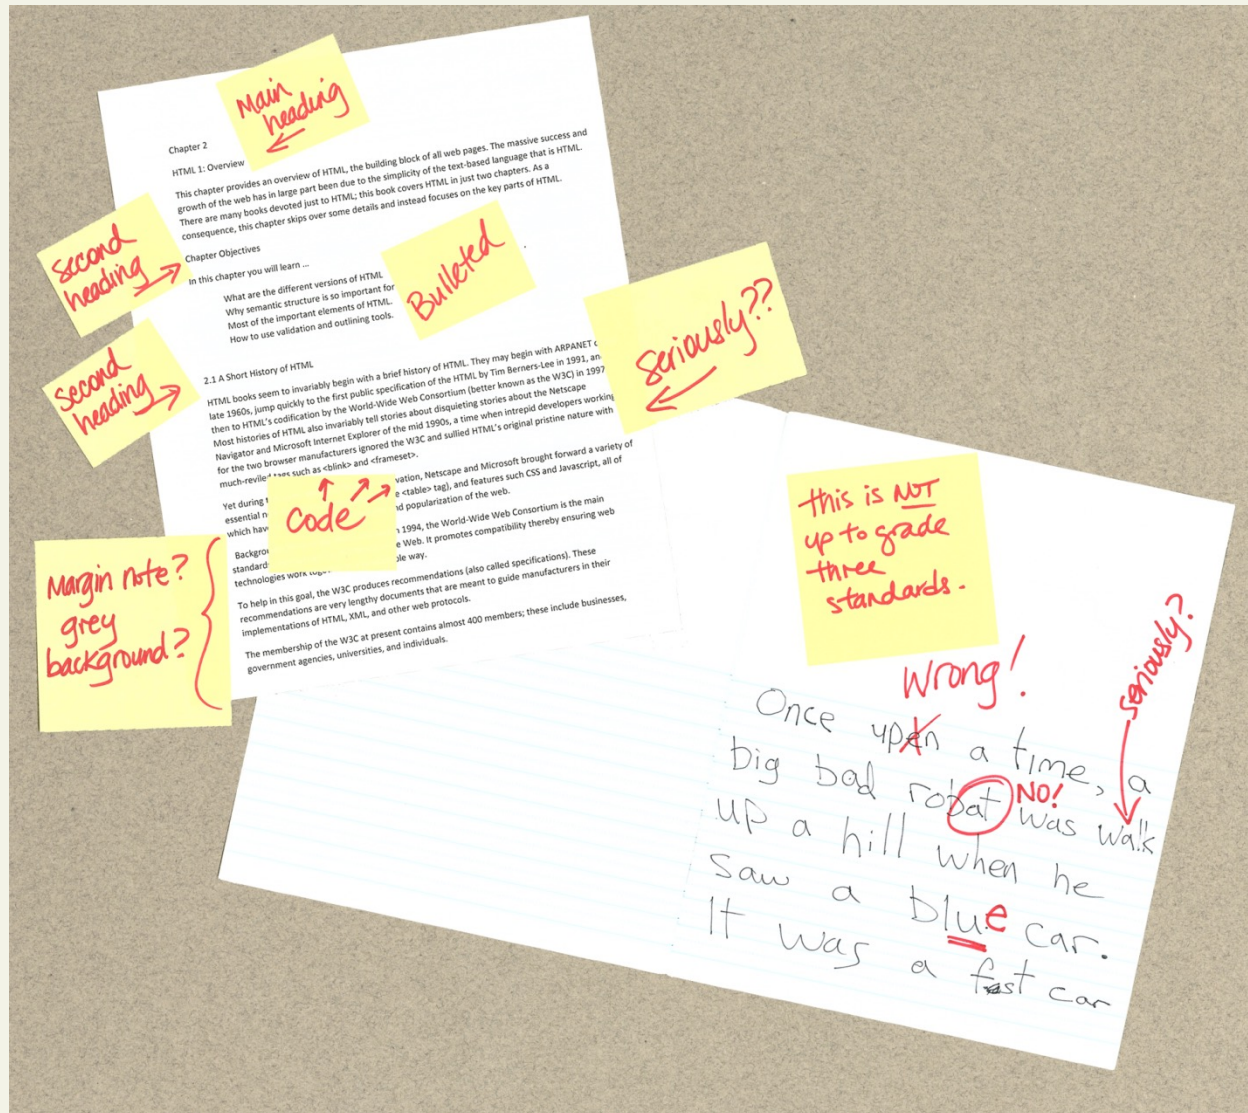 Main
heading
Chapter 2
HTML 1: Overview
This chapter provides an overview of HTML, the building block of all web pages. The massive success and
growth of the web has in large part been due to the simplicity of the text-based language that is HTML.
There are many books devoted just to HTML; this book covers HTML in just two chapters. As a
consequence, this chapter skips over some details and instead focuses on the key parts of HTML.
second
heading
Chapter Objectives
In this chapter you will learn ...
What are the different versions of HTML
Why semantic structure is so important for
Most of the important elements of HTML.
How to use validation and outlining tools.
Bulleted
second
heading
2.1 A Short History of HTML
HTML books seem to invariably begin with a brief history of HTML. They may begin with ARPANET
late 1960s, jump quickly to the first public specification of the HTML by Tim Berners-Lee in 1991, an
then to HTML's codification by the World-Wide Web Consortium (better known as the W3C) in 1997
Most histories of HTML also invariably tell stories about disquieting stories about the Netscape
Navigator and Microsoft Internet Explorer of the mid 1990s, a time when intrepid developers working
for the two browser manufacturers ignored the W3C and sullied HTML's original pristine nature with
much-reviled tags such as <blink> and <frameset>.
seriously??
Yet during vation, Netscape and Microsoft brought forward a variety of
essential e <table> tag), and features such CSS and Javascript, all of
which hav nd popularization of the web.
code
Backgrou 1994, the World-Wide Web Consortium is the main
standard e Web. It promotes compatibility thereby ensuring web
technologies work ble way.
To help in this goal, the W3C produces recommendations (also called specifications). These
recommendations are very lengthy documents that are meant to guide manufacturers in their
implementations of HTML, XML, and other web protocols.
The membership of the W3C at present contains almost 400 members; these include businesses,
government agencies, universities, and individuals.
Margin note?
grey
background?
this is NOT
up to grade
three
standards.
Wrong!
seriously?
Once upen a time, a
big bad robat was walk
NO!
up a hill when he
saw a blue car.
It was a fast car